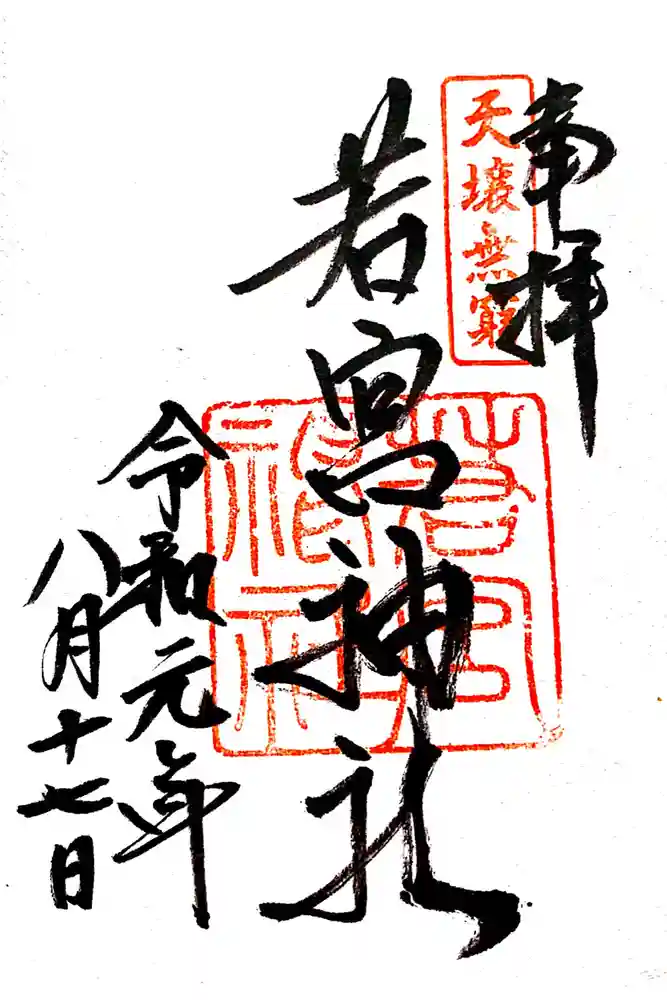 奉拝
天壌無窮
若宮神社
若宮
神社
令和元年
八月十七日